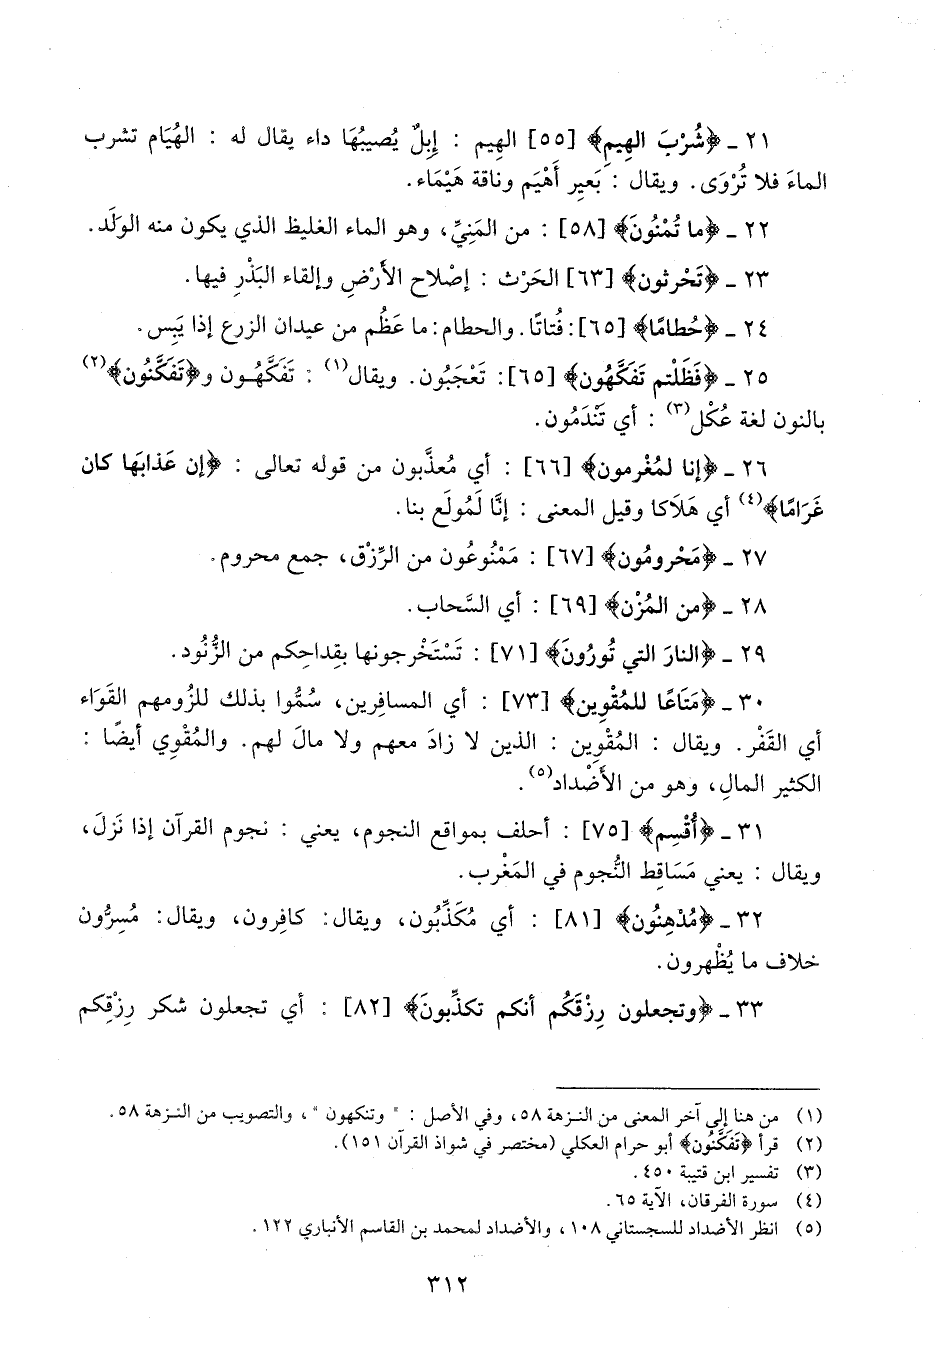 ٢١ ـ ﴿شُرْبَ الهِيمِ﴾ [٥٥] الهِيم : إِبِلٌ يُصيبُهَا داء يقال له : الهُيَام تشرب
الماءَ فلا تُرْوَى. ويقال : بَعيِر أَهْيَم وناقة هَيْمَاء.
٢٢ ـ ﴿ما تُمْنُونَ﴾ [٥٨] : من المَنِيِّ، وهو الماء الغليظ الذي يكون منه الولَد.
٢٣ ـ ﴿تَحْرثون﴾ [٦٣] الحَرْث : إصْلاح الأَرْضِ وإلقاء البَذْرِ فيها.
٢٤ ـ ﴿حُطامًا﴾ [٦٥]: فُتاتًا. والحطام: ما عَظُم من عيدان الزرع إذا يَبِس.
٢٥ ـ ﴿فَظَلْتم تَفَكَّهُون﴾ [٦٥]: تَعْجَبُون. ويقال(١) : تَفَكَّهُـون و﴿تَفَكَّنُون﴾(٢)
بالنون لغة عُكْل(٣) : أي تَنْدَمُون.
٢٦ ـ ﴿إنا لمُغْرمون﴾ [٦٦] : أي مُعذَّبون من قوله تعالى : ﴿إن عَذابَها كان
غَرَامًا﴾(٤) أي هَلَاكا وقيل المعنى : إنَّا لَمُولَع بنا.
٢٧ ـ ﴿مَحْرومُون﴾ [٦٧] : مَمْنُوعُون من الرِّزْق، جمع محروم.
٢٨ ـ ﴿من المُزْن﴾ [٦٩] : أي السَّحاب.
٢٩ ـ ﴿النارَ التي تُورُونَ﴾ [٧١] : تَسْتَخْرجونها بقِداحِكم من الزُّنُود.
٣٠ ـ ﴿مَتَاعًا للمُقْوِين﴾ [٧٣] : أي المسافرِين، سُمُّوا بذلك للزُومهم القَوَاء
أي القَفْر. ويقال : المُقْوِين : الذين لا زادَ معهم ولا مالَ لهم. والمُقْوِي أيضًا :
الكثير المالِ، وهو من الأَضْداد(٥).
٣١ ـ ﴿أُقْسِم﴾ [٧٥] : أحلف بمواقع النجوم، يعني : نجوم القرآن إذا نَزلَ،
ويقال : يعني مَسَاقِط النُّجوم في المَغْرب.
٣٢ ـ ﴿مُدْهِنُون﴾ [٨١] : أي مُكَذِّبُون، ويقال: كافِرون، ويقال: مُسِرُّون
خلاف ما يُظْهرون.
٣٣ ـ ﴿وتجعلون رِزْقَكُم أنكم تكذِّبونَ﴾ [٨٢] : أي تجعلون شكر رِزْقِكم
(١) من هنا إلى آخر المعنى من النـزهة ٥٨، وفي الأصل : " وتنكهون "، والتصويب من النـزهة ٥٨.
(٢) قرأ ﴿تَفَكَّنُون﴾ أبو حرام العكلي (مختصر في شواذ القرآن ١٥١).
(٣) تفسير ابن قتيبة ٤٥٠.
(٤) سورة الفرقان، الآية ٦٥.
(٥) انظر الأضداد للسجستاني ١٠٨، والأضداد لمحمد بن القاسم الأنباري ١٢٢.
٣١٢